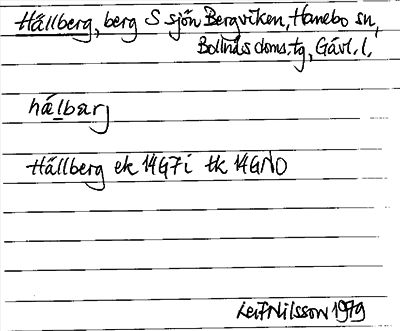 Hällberg, berg S sjön Bergviken, Hanebo sn,
Bollnäs doms.tg, Gävl. l,
hälbarj
Hällberg ek 14G7i tk 14GNO
Leif Nilsson 1979